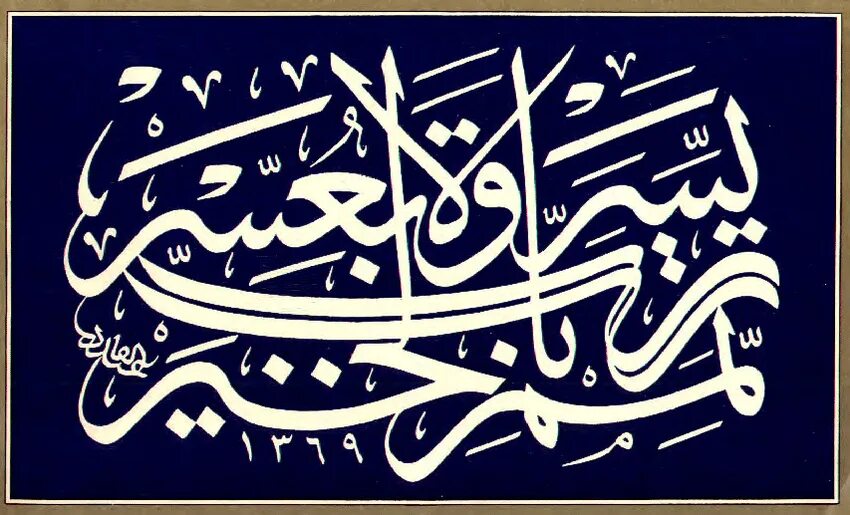 رَبِّ يَسِّرْ وَلَا تُعَسِّرْ
رَبِّ تَمِّمْ بِالْخَيْرِ
عبدالقادر
١٣٦٩